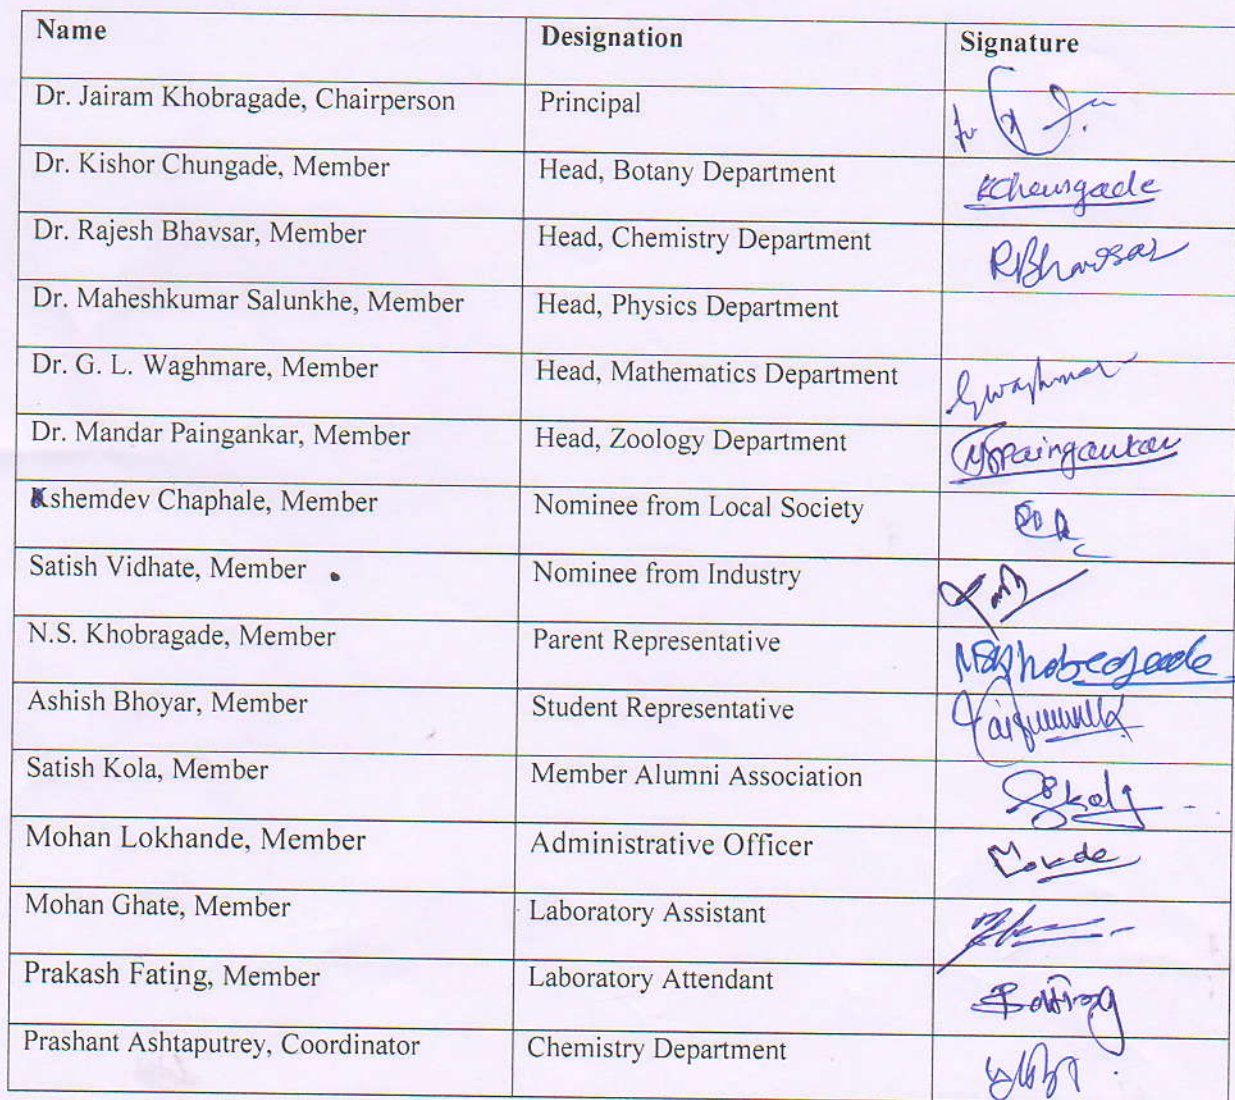 Name Designation Signature
Dr. Jairam Khobragade, Chairperson Principal
Dr. Kishor Chungade, Member Head, Botany Department KChungade
Dr. Rajesh Bhavsar, Member Head, Chemistry Department RBhavsar
Dr. Maheshkumar Salunkhe, Member Head, Physics Department
Dr. G. L. Waghmare, Member Head, Mathematics Department
Dr. Mandar Paingankar, Member Head, Zoology Department
Kshemdev Chaphale, Member Nominee from Local Society
Satish Vidhate, Member Nominee from Industry
N.S. Khobragade, Member Parent Representative
Ashish Bhoyar, Member Student Representative
Satish Kola, Member Member Alumni Association
Mohan Lokhande, Member Administrative Officer
Mohan Ghate, Member Laboratory Assistant
Prakash Fating, Member Laboratory Attendant
Prashant Ashtaputrey, Coordinator Chemistry Department